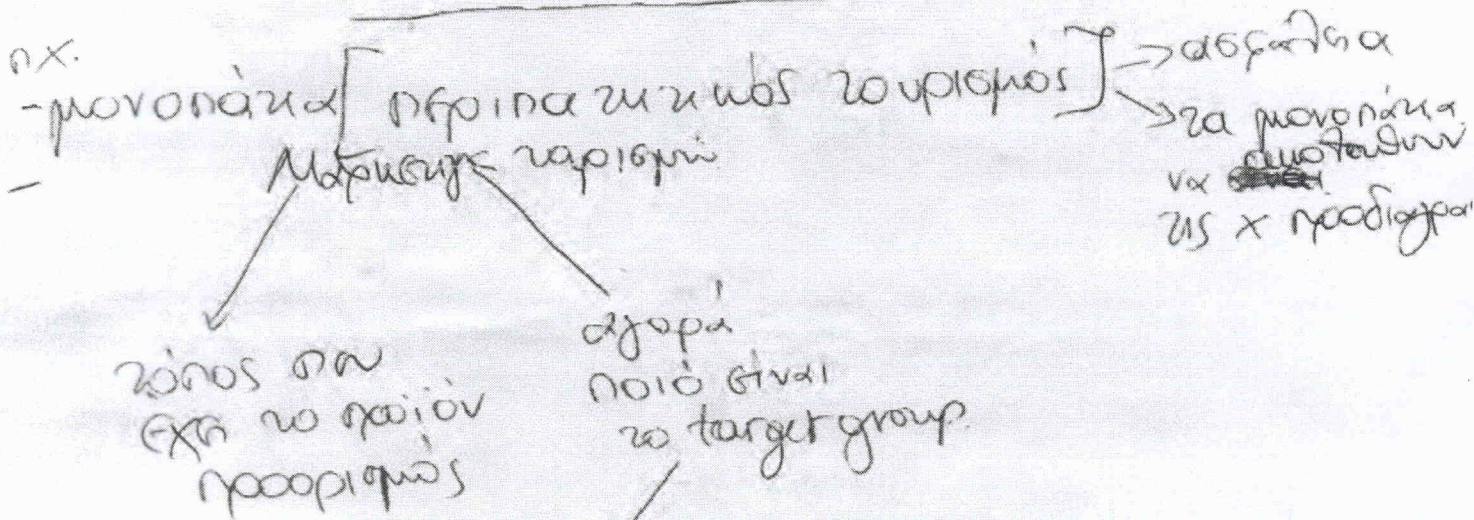 πχ.
-μονοπάτια [περιπατητικός τουρισμός] → ασφάλεια
→ τα μονοπάτια
να ικανοποιούν
τις x προδιαγρα
Μάρκετινγκ τουρισμού
-
τόπος που
έχει το προϊόν
προορισμός
αγορά
ποιό είναι
το target group.